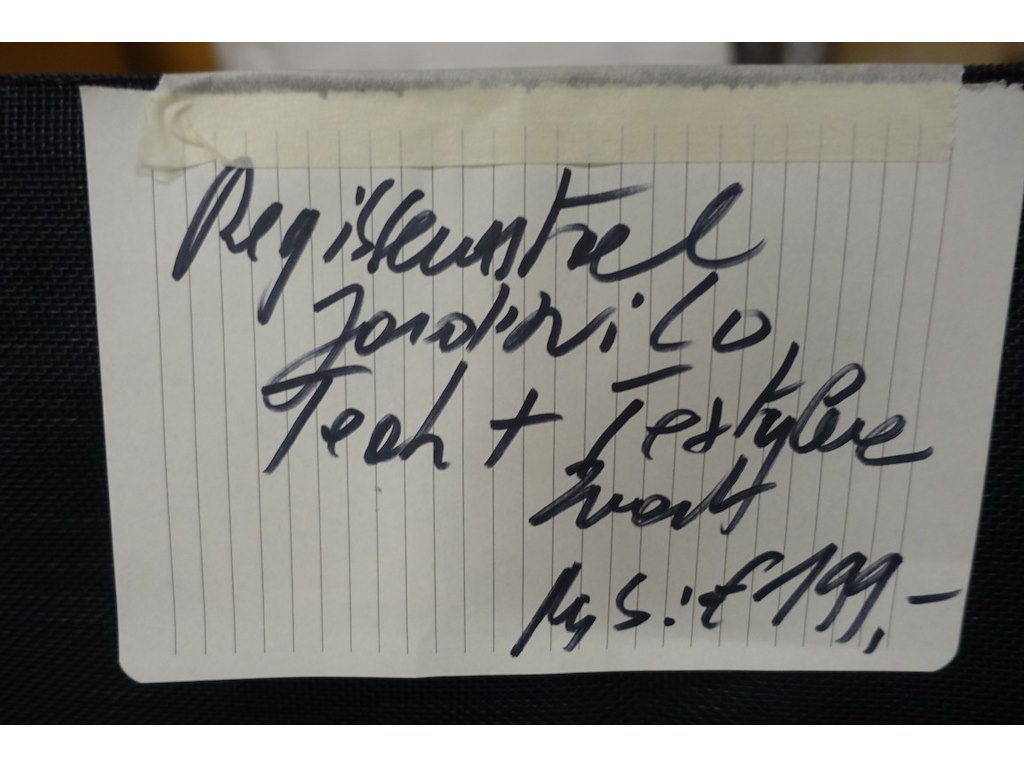 Regisseurstoel
Jardinico,
Teak + Textylene
zwart
Nys: € 199,-